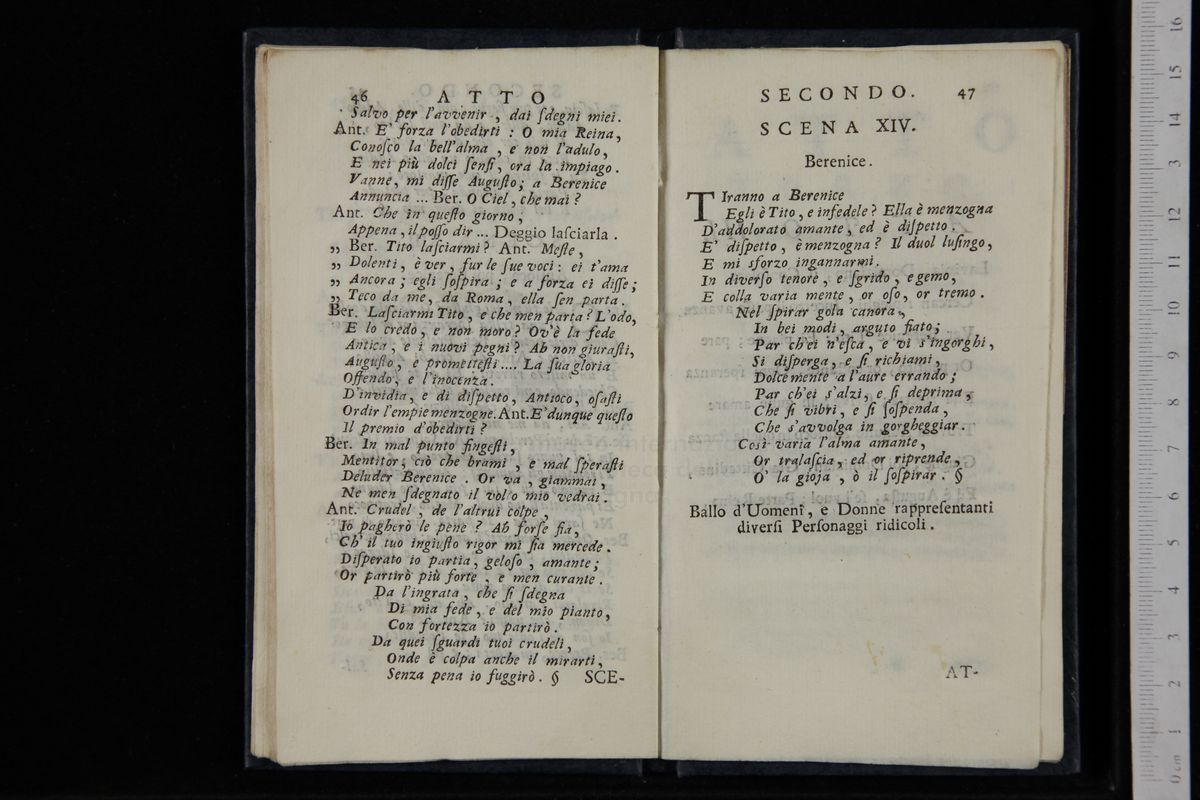 46 ATTO
Salvo per l'avvenir, dai ſdegni miei.
Ant. E' forza l'obedirti : O mia Reina,
Conoſco la bell'alma, e non l'adulo,
E nei più dolci ſenſi, ora la impiago.
Vanne, mi diſſe Auguſto; a Berenice
Annuncia ... Ber. O Ciel, che mai ?
Ant. Che in queſto giorno,
Appena, il poſſo dir ... Deggio laſciarla.
„ Ber. Tito laſciarmi ? Ant. Meſte,
„ Dolenti, è ver, fur le ſue voci : ei t'ama
„ Ancora ; egli ſoſpira ; e a forza ei diſſe ;
„ Teco da me, da Roma, ella ſen parta.
Ber. Laſciarmi Tito, e che men parta ? L'odo,
E lo credo, e non moro ? Ov'è la fede
Antica, e i nuovi pegni ? Ah non giuraſti,
Auguſto, e prometteſti .... La ſua gloria
Offendo, e l'inocenza.
D'invidia, e di diſpetto, Antioco, oſaſti
Ordir l'empie menzogne. Ant. E' dunque queſto
Il premio d'obedirti ?
Ber. In mal punto fingeſti,
Mentitor, ciò che brami, e mal ſperaſti
Deluder Berenice. Or va, giammai,
Ne men ſdegnato il volto mio vedrai.
Ant. Crudel, de l'altrui colpe,
Io pagherò le pene ? Ah forſe fia,
Ch' il tuo ingiuſto rigor mi ſia mercede.
Diſperato io partia, geloſo, amante ;
Or partirò più forte, e men curante.
Da l'ingrata, che ſi ſdegna
Di mia fede, e del mio pianto,
Con fortezza io partirò.
Da quei ſguardi tuoi crudeli,
Onde è colpa anche il mirarti,
Senza pena io fuggirò. § SCE-
SECONDO. 47
SCENA XIV.
Berenice.
TIranno a Berenice
Egli è Tito, e infedele ? Ella è menzogna
D'addolorato amante, ed è diſpetto.
E' diſpetto, è menzogna ? Il duol luſingo,
E mi sforzo ingannarmi.
In diverſo tenore, e ſgrido, e gemo,
E colla varia mente, or oſo, or tremo.
Nel ſpirar gola canora,
In bei modi, arguto fiato ;
Par ch'ei n'eſca, e vi s'ingorghi,
Si diſperga, e ſi richiami,
Dolcemente a l'aure errando ;
Par ch'ei s'alzi, e ſi deprima,
Che ſi vibri, e ſi ſoſpenda,
Che s'avvolga in gorgheggiar.
Così varia l'alma amante,
Or tralaſcia, ed or riprende,
O' la gioja, ò il ſoſpirar. §
Ballo d'Uomeni, e Donne rappreſentanti
diverſi Perſonaggi ridicoli.
AT-